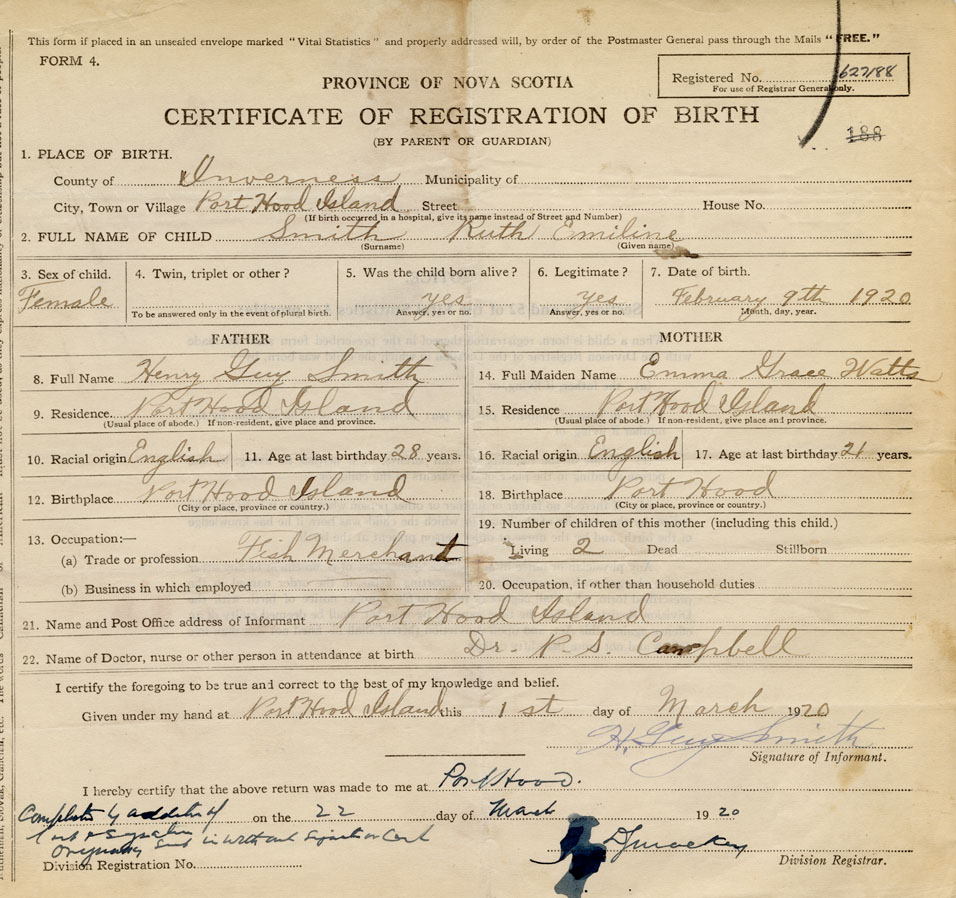 This form if placed in an unsealed envelope marked "Vital Statistics" and properly addressed will, by order of the Postmaster General pass through the Mails "FREE."
FORM 4.
Registered No. 627188
For use of Registrar General only.
PROVINCE OF NOVA SCOTIA
CERTIFICATE OF REGISTRATION OF BIRTH
(BY PARENT OR GUARDIAN)
188
1. PLACE OF BIRTH.
County of Inverness Municipality of
City, Town or Village Port Hood Island Street House No.
(If birth occurred in a hospital, give its name instead of Street and Number)
2. FULL NAME OF CHILD Smith Ruth Emiline
(Surname) (Given name)
3. Sex of child. 4. Twin, triplet or other? 5. Was the child born alive? 6. Legitimate? 7. Date of birth.
Female yes Yes February 9th 1920
To be answered only in the event of plural birth. Answer, yes or no. Answer, yes or no. Month, day, year.
FATHER MOTHER
8. Full Name Henry Guy Smith 14. Full Maiden Name Emma Grace Watts
9. Residence Port Hood Island 15. Residence Port Hood Island
(Usual place of abode.) If non-resident, give place and province. (Usual place of abode.) If non-resident, give place and province.
10. Racial origin English 11. Age at last birthday 28 years. 16. Racial origin English 17. Age at last birthday 21 years.
12. Birthplace Port Hood Island 18. Birthplace Port Hood
(City or place, province or country.) (City or place, province or country.)
13. Occupation:— 19. Number of children of this mother (including this child.)
(a) Trade or profession Fish Merchant Living 2 Dead Stillborn
(b) Business in which employed 20. Occupation, if other than household duties
21. Name and Post Office address of Informant Port Hood Island
22. Name of Doctor, nurse or other person in attendance at birth Dr. P. S. Campbell
I certify the foregoing to be true and correct to the best of my knowledge and belief.
Given under my hand at Port Hood Island this 1st day of March 1920
H. Guy Smith
Signature of Informant.
I hereby certify that the above return was made to me at Port Hood.
Completed by addition of on the 22 day of March 1920
Originally sent in without Signature Cert
Division Registration No. Division Registrar.